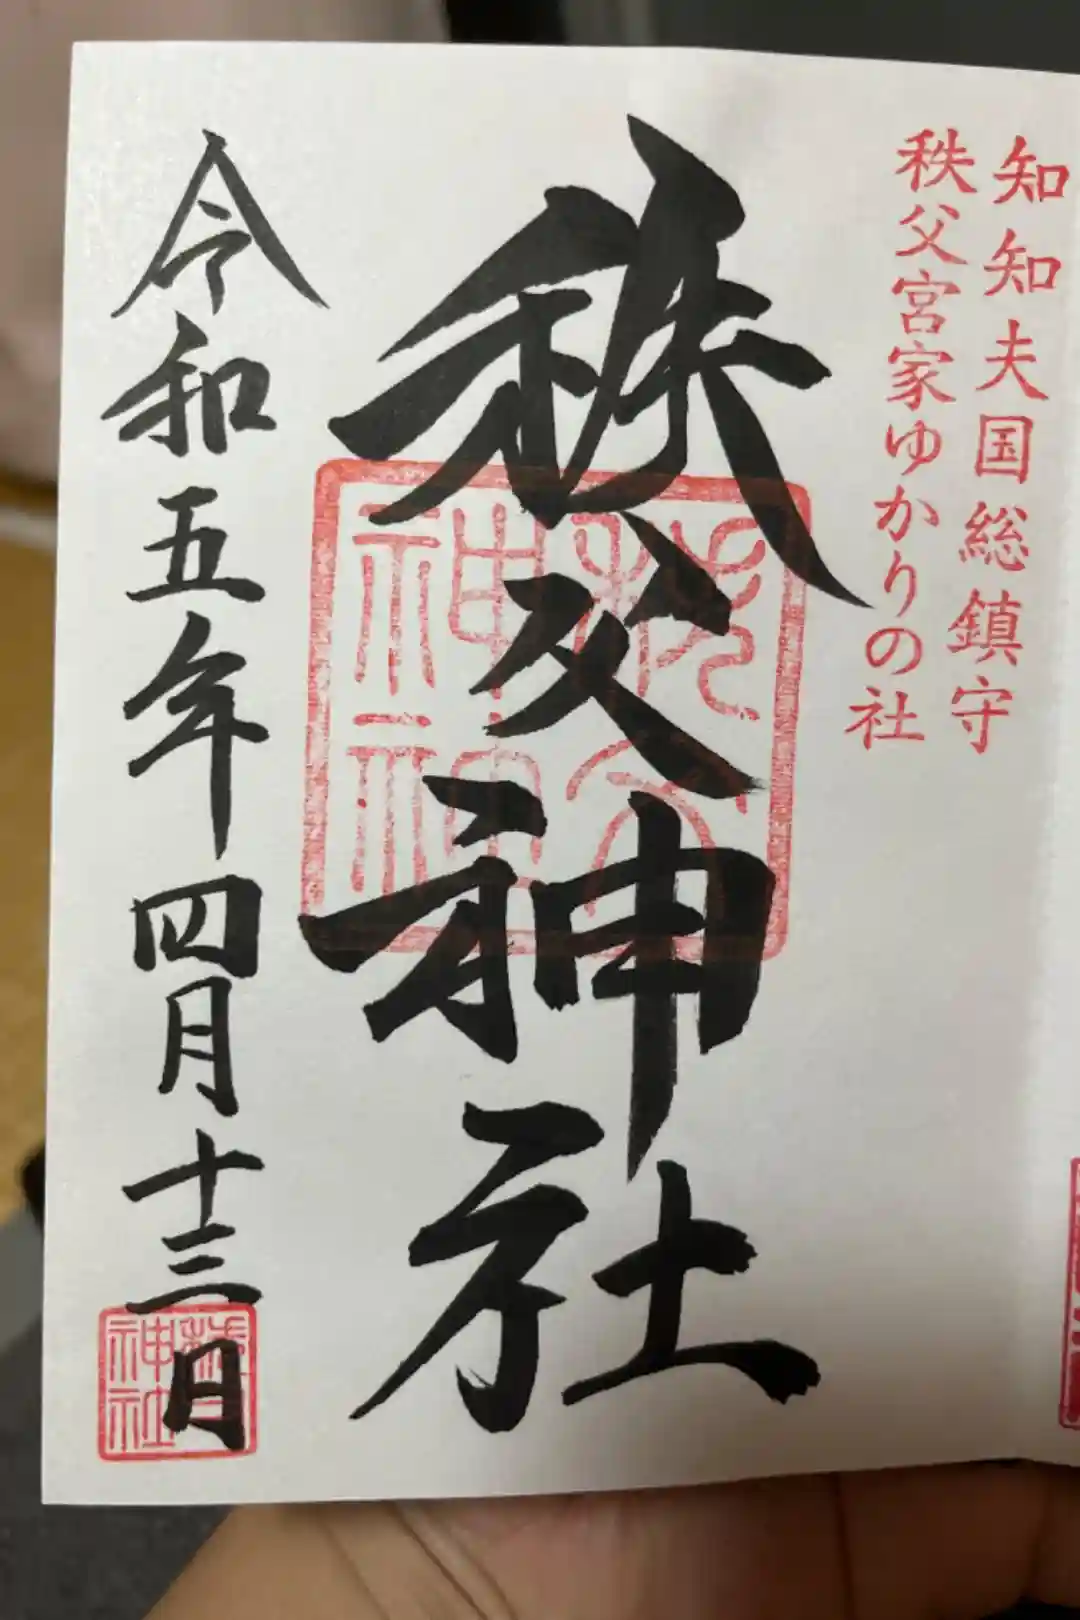 知知夫国総鎮守
秩父宮家ゆかりの社
秩父神社
秩父神社
令和五年四月十三日
神社